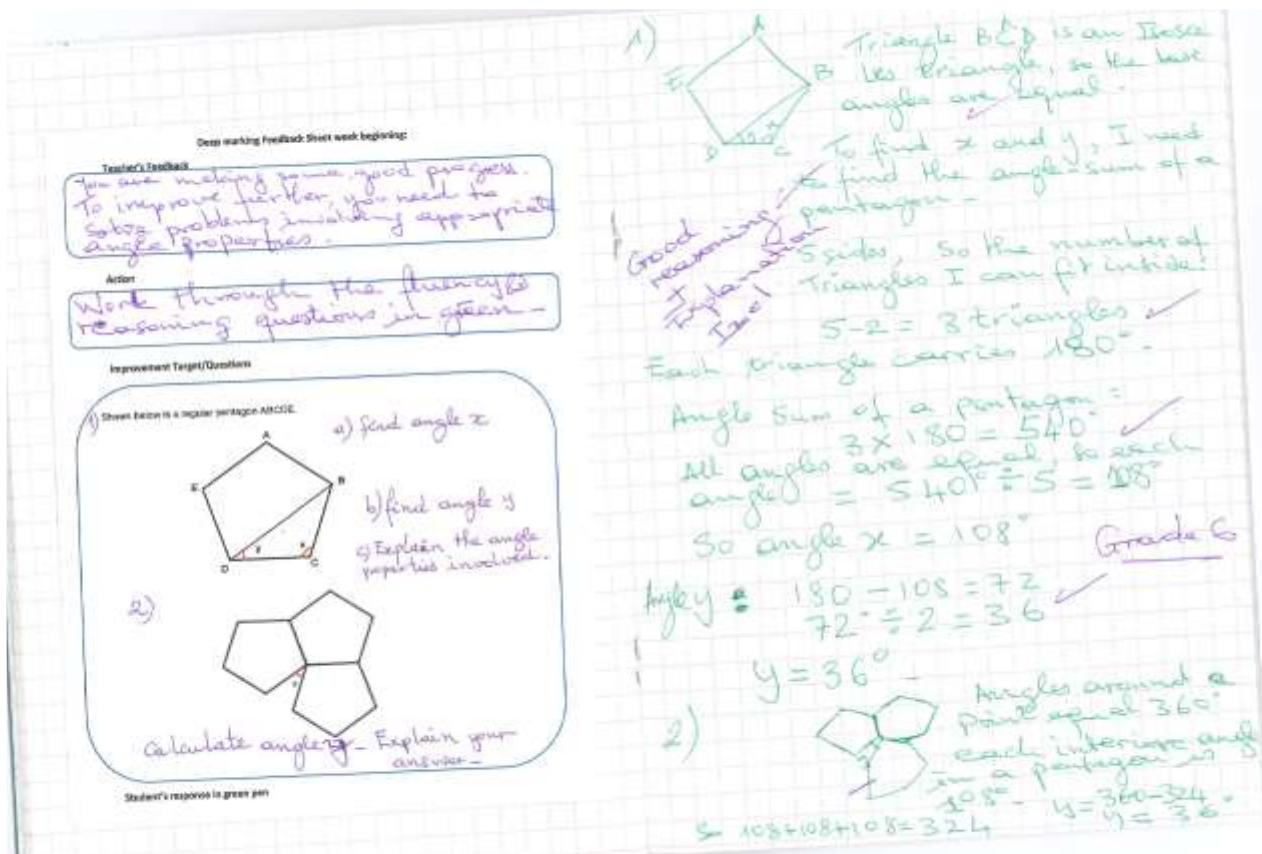 Deep marking Feedback Sheet week beginning:
Teacher's Feedback
You are making some good progress.
To improve further, you need to
solve problems involving appropriate
angle properties.
Action
Work through the fluency &
reasoning questions in green -
Improvement Target/Questions
1) Shown below is a regular pentagon ABCDE.
a) find angle x
A
E
B
b) find angle y
c) Explain the angle
properties involved.
y
x
D
C
2)
Calculate angle y - Explain your
answer -
Student's response in green pen
1)
A
E
B
D
C
Triangle BCD is an Isosce
les triangle, so the base
angles are equal.
To find x and y, I need
to find the angle-sum of a
pentagon -
Good
reasoning
+
Explanation
5 sides, so the number of
Triangles I can fit inside:
5-2 = 3 triangles
Each triangle carries 180° -
Angle Sum of a pentagon =
3 x 180 = 540°
All angles are equal, so each
angle = 540° ÷ 5 = 108°
So angle x = 108°
Grade 6
Angle y : 180 - 108 = 72
72° ÷ 2 = 36
y = 36° -
2)
Angles around a
point equal 360°
each interior angle
in a pentagon is
108° -
108+108+108 = 324
y = 360-324
y = 36°